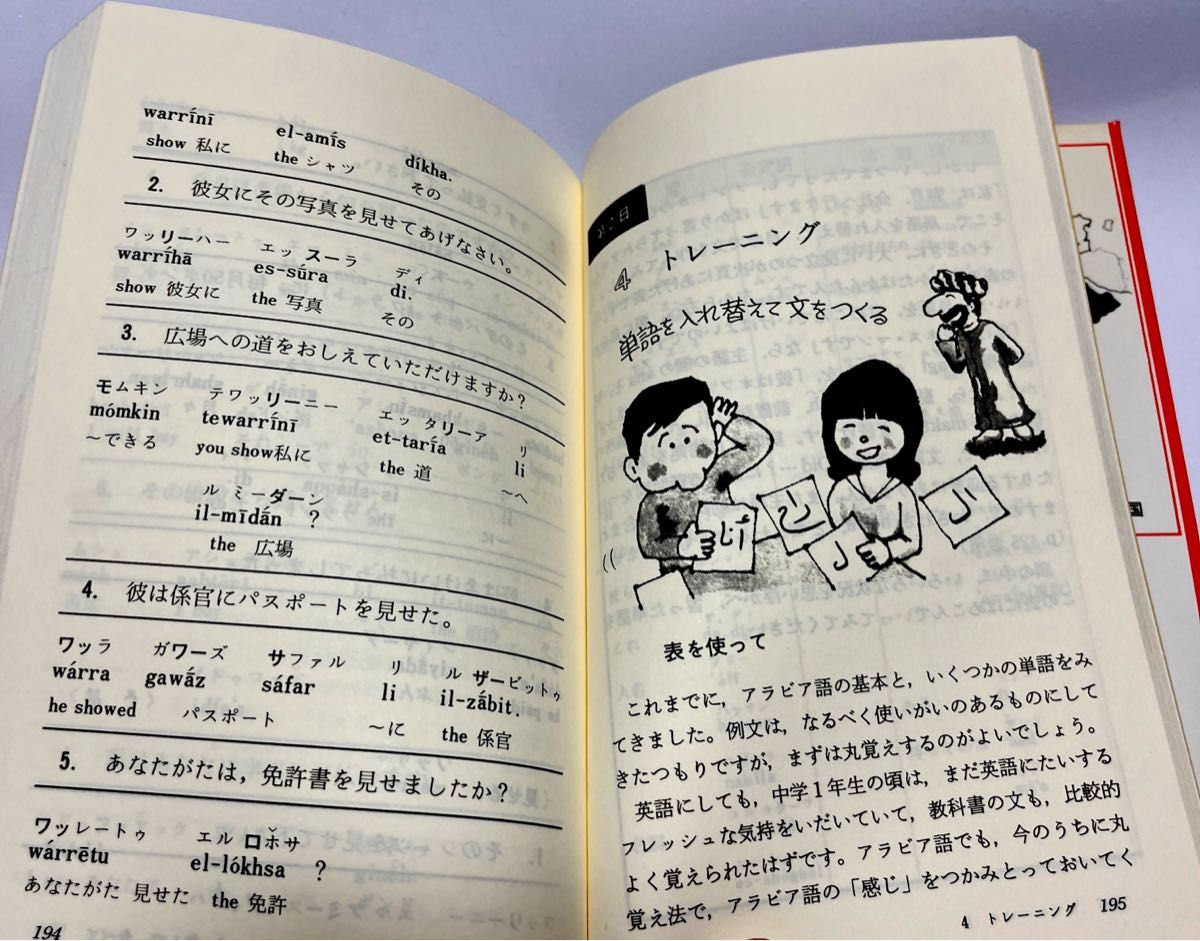 warrī́nī el-amī́s díkha.
show 私に the シャツ その
2. 彼女にその写真を見せてあげなさい。
ワッリーハー エッ スーラ ディ
warrī́hā es-sū́ra di.
show 彼女に the 写真 その
3. 広場への道をおしえていただけますか?
モムキン テワッリーニー エッ タリーア リ
mómkin tewarrī́nī et-tarīa li
～できる you show私に the 道 ～へ
ル ミーダーン
il-mīdā́n ?
the 広場
4. 彼は係官にパスポートを見せた。
ワッラ ガワーズ サファル リ ル ザービットゥ
wárra gawā́z sáfar li il-zā́bit.
he showed パスポート ～に the 係官
5. あなたがたは，免許書を見せましたか?
ワッレートゥ エル ロホサ
wárrētu el-lókhsa ?
あなたがた 見せた the 免許
194
日
4 トレーニング
単語を入れ替えて文をつくる
表を使って
これまでに，アラビア語の基本と，いくつかの単語をみ
てきました。例文は，なるべく使いがいのあるものにして
きたつもりですが，まずは丸覚えするのがよいでしょう。
英語にしても，中学1年生の頃は，まだ英語にたいする
フレッシュな気持をいだいていて，教科書の文も，比較的
よく覚えられたはずです。アラビア語でも，今のうちに丸
覚え法で，アラビア語の「感じ」をつかみとっておいてく
4 トレーニング 195
国